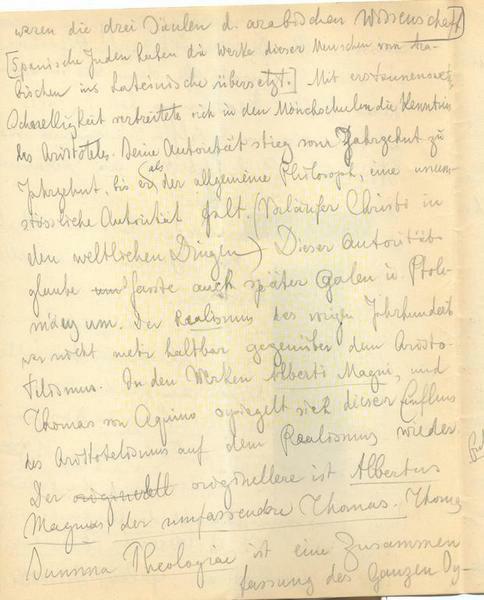 waren die drei Säulen d. arabischen Wissenschaft
[Spanische Juden haben die Werke dieser Menschen vom Ara-
bischen ins Lateinische übersetzt.] Mit erstaunenswerter
Schnelligkeit verbreitete sich in den Mönchschulen die Kenntnis
des Aristoteles. Seine Autorität stieg von Jahrzehnt zu
Jahrzehnt, bis er als der allgemeine Philosoph, eine unum-
stössliche Autorität galt. (Vorläufer Christi in
den weltlichen Dingen) Dieser Autoritäts-
glaube fasste auch später Galen u. Ptole-
mäus um. Der Realismus des vorigen Jahrhundert
war nicht mehr haltbar gegenüber dem Aristo-
telismus. In den Werken Alberti Magni, und
Thomas von Aquino spiegelt sich dieser Einfluss
des Aristotelismus auf dem Realismus wieder.
Der originellere ist Albertus
Magnus der umfassendere Thomas. Thomas
Summa Theologiae ist eine Zusammen
fassung des ganzen